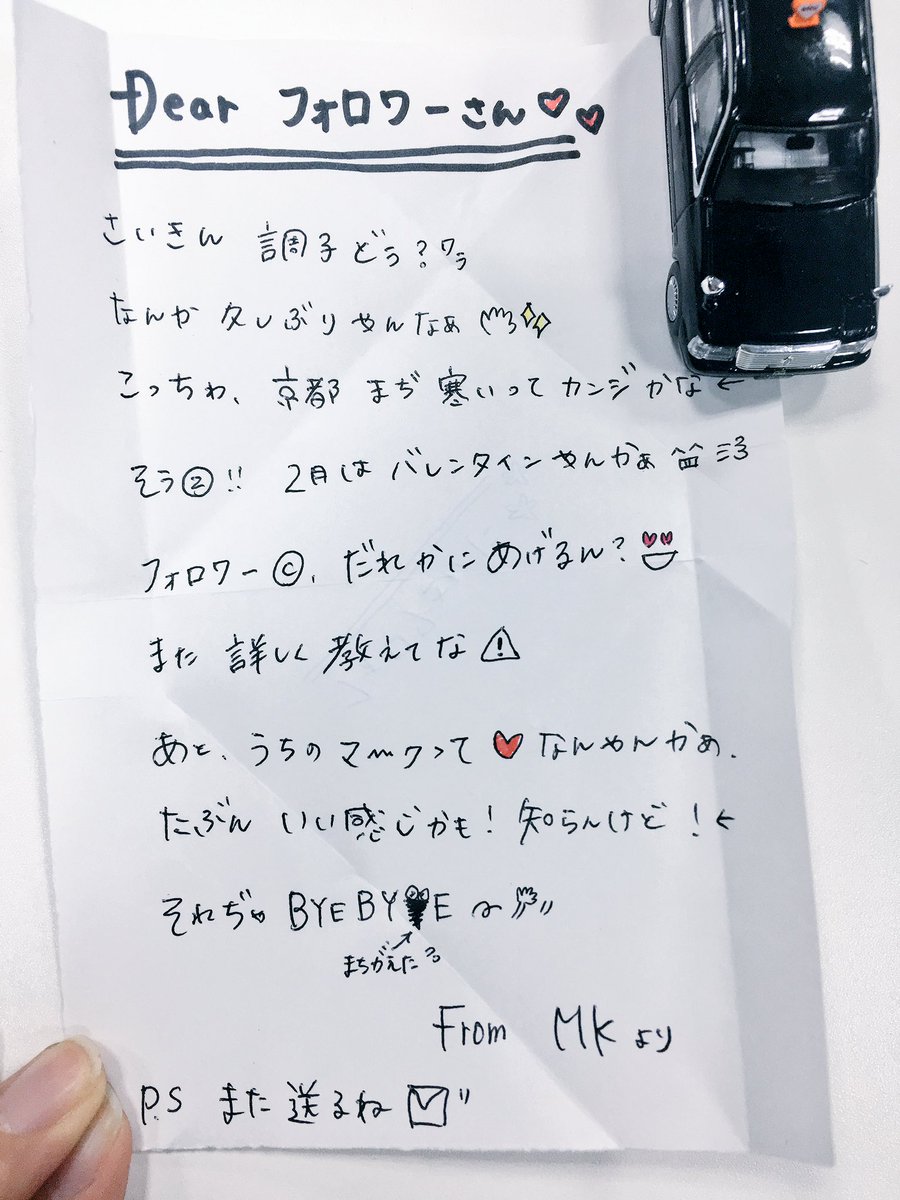 Dear フォロワーさん♡♡
さいきん 調子どう?ワラ
なんか 久しぶりやんなぁ
こっちわ、京都 まぢ 寒いって カンジかな←
そう②!! 2月は バレンタインやんかぁ
フォロワー©、だれかに あげるん?
また 詳しく 教えてな⚠
あと、うちの マークって ♥ なんやんかぁ、
たぶん いい感じかも! 知らんけど!←
それぢゃ BYE BYE~
まちがえた
From MKより
P.S また送るね